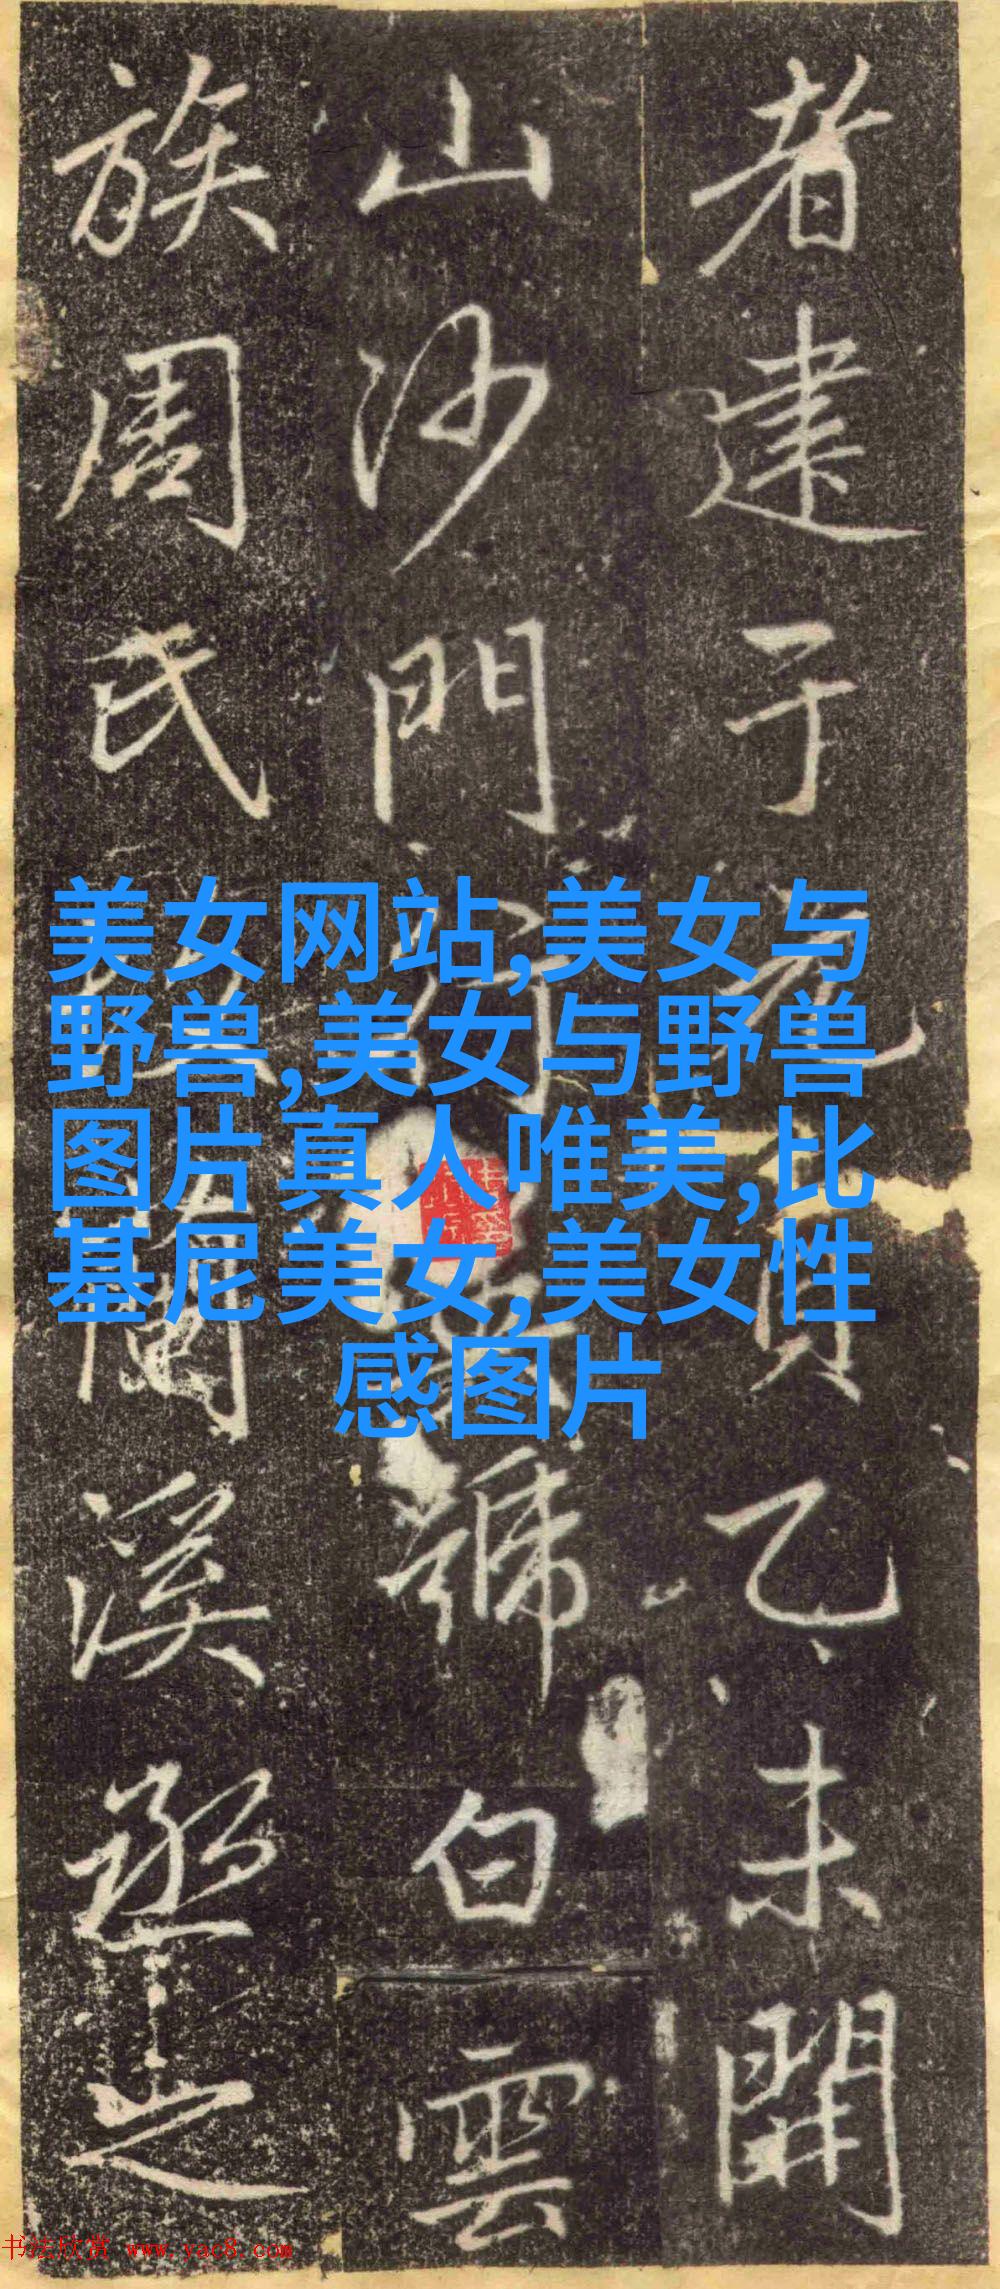 者建于元貞乙未開
山沙門行號白雲
族周氏蘭溪丞之
美女网站,美女与
野兽,美女与野兽
图片真人唯美,比
基尼美女,美女性
感图片
书法欣赏 www.yac8.com